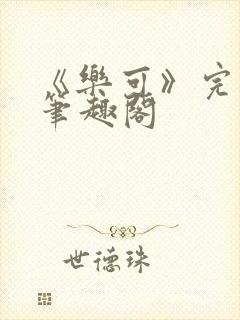 《樂可》完
筆趣閣
世德珠